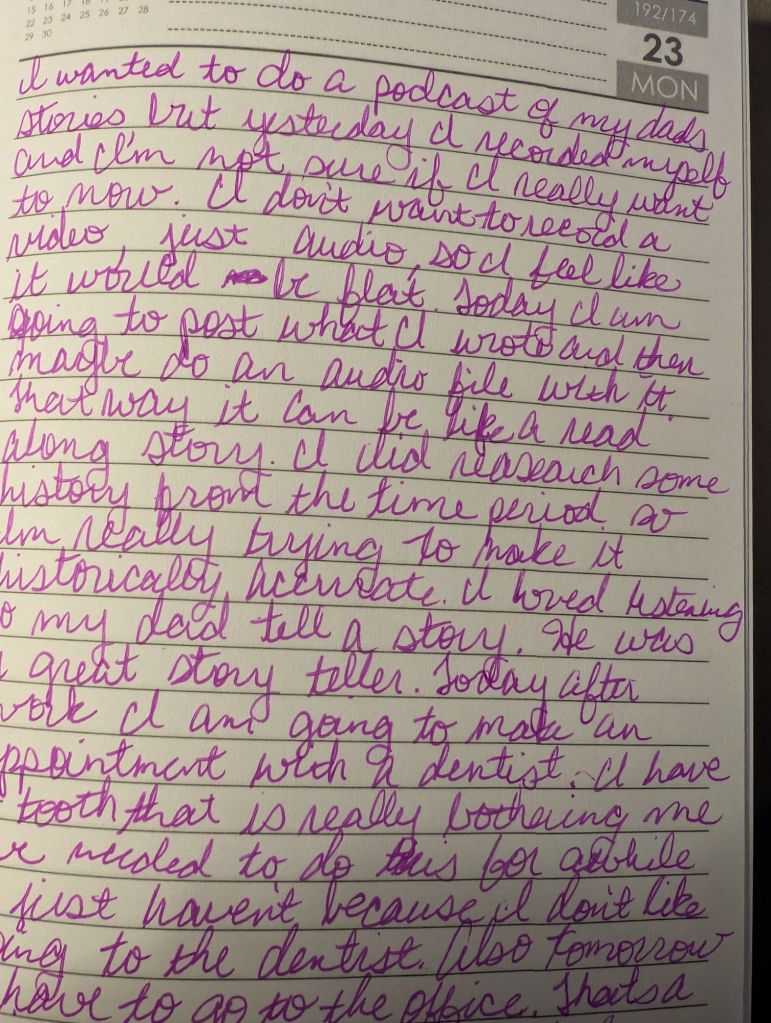 15 16 17 18 19 20 21
22 23 24 25 26 27 28
29 30
192/174
23
MON
I wanted to do a podcast of my dads
stories but yesterday I recorded myself
and I'm not sure if I really want
to now. I don't want to record a
video, just audio, so I feel like
it would be flat. Today I am
going to post what I wrote and then
maybe do an audio file with it
that way it can be like a read
along story. I did reasearch some
history from the time period so
Im really trying to make it
historically accurate. I loved listening
o my dad tell a story. He was
great story teller. Today after
work I am going to make an
ppointment with a dentist. I have
tooth that is really bothering me
ve needed to do this for awhile
just haven't because I don't like
oing to the dentist. Also tomorrow
have to go to the office. Thats a